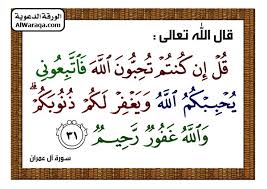 الورقة الدعوية
AlWaraqa.com
قال الله تعالى :
قُلْ إِن كُنتُمْ تُحِبُّونَ اللَّهَ فَاتَّبِعُونِي
يُحْبِبْكُمُ اللَّهُ وَيَغْفِرْ لَكُمْ ذُنُوبَكُمْ ۗ
وَاللَّهُ غَفُورٌ رَّحِيمٌ ٣١
سورة آل عمران